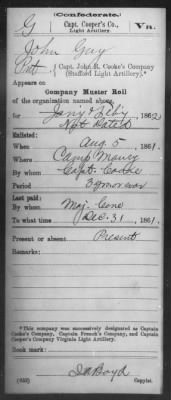 (Confederate.)
G Capt. Cooper's Co., Va.
Light Artillery
John Guy
Pvt., Capt. John R. Cooke's Company
(Stafford Light Artillery).*
Appears on
Company Muster Roll
of the organization named above,
for Jany & Feby, 1862
Not Dated
Enlisted:
When Aug. 5, 1861.
Where Camp Maury
By whom Capt. Cooke
Period 3 yrs or war
Last paid:
By whom Maj. Cone
To what time Dec. 31, 1861.
Present or absent Present
Remarks:
*This company was successively designated as Captain
Cooke's Company, Captain French's Company, and Captain
Cooper's Company Virginia Light Artillery.
Book mark:
Boyd
(642) Copyist.